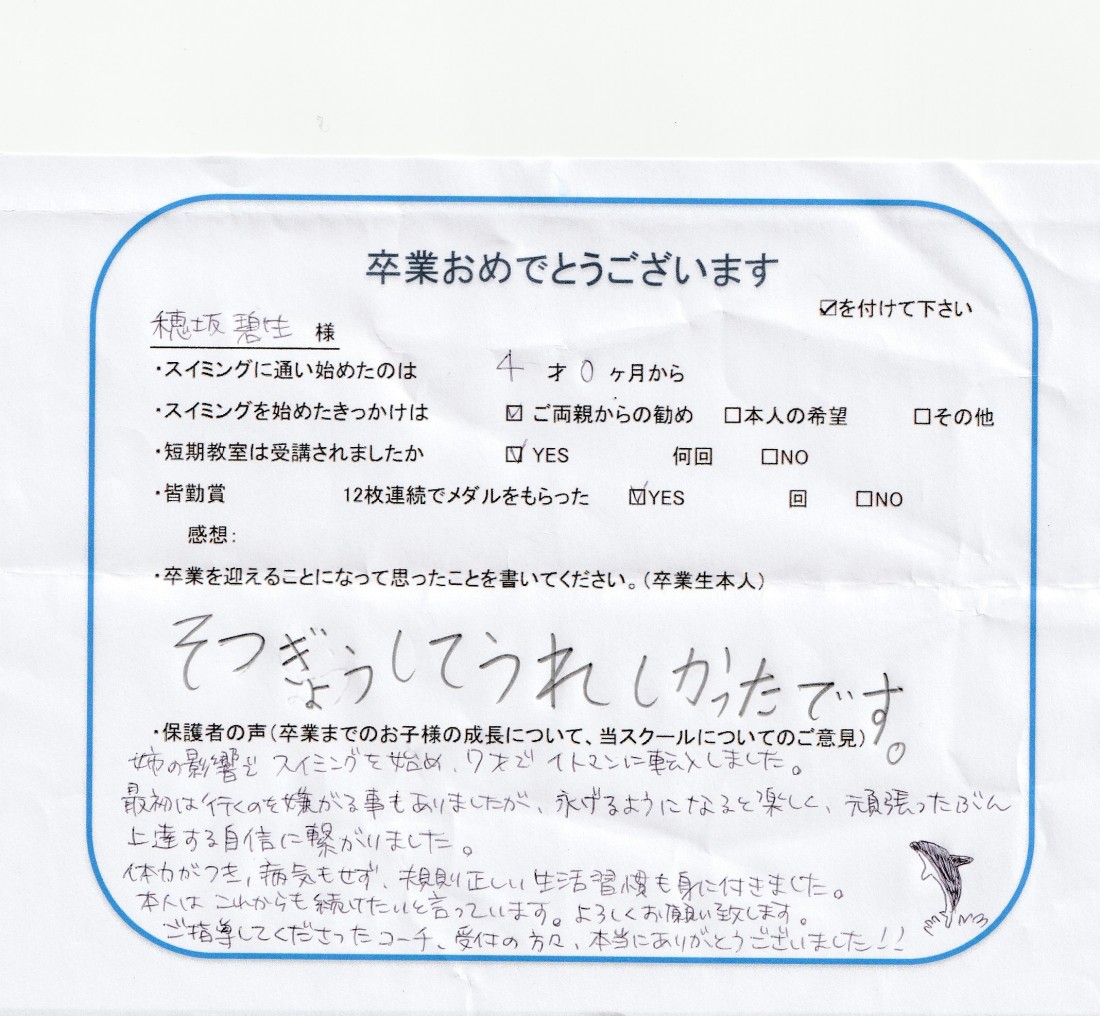 卒業おめでとうございます
☑を付けて下さい
穂坂 碧生 様
・スイミングに通い始めたのは 4 才 0 ヶ月から
・スイミングを始めたきっかけは ☑ ご両親からの勧め □本人の希望 □その他
・短期教室は受講されましたか ☑ YES 何回 □NO
・皆勤賞 12枚連続でメダルをもらった ☑YES 回 □NO
感想:
・卒業を迎えることになって思ったことを書いてください。(卒業生本人)
そつぎょうしてうれしかったです。
・保護者の声(卒業までのお子様の成長について、当スクールについてのご意見)
姉の影響で スイミングを始め、7才で イトマンに転入しました。
最初は行くのを嫌がる事もありましたが、泳げるようになると楽しく、頑張ったぶん
上達する自信に繋がりました。
体力がつき、病気もせず、規則正しい生活習慣も身に付きました。
本人は これからも続けたいと言っています。よろしくお願い致します。
ご指導してくださったコーチ、受付の方々、本当にありがとうございました!!